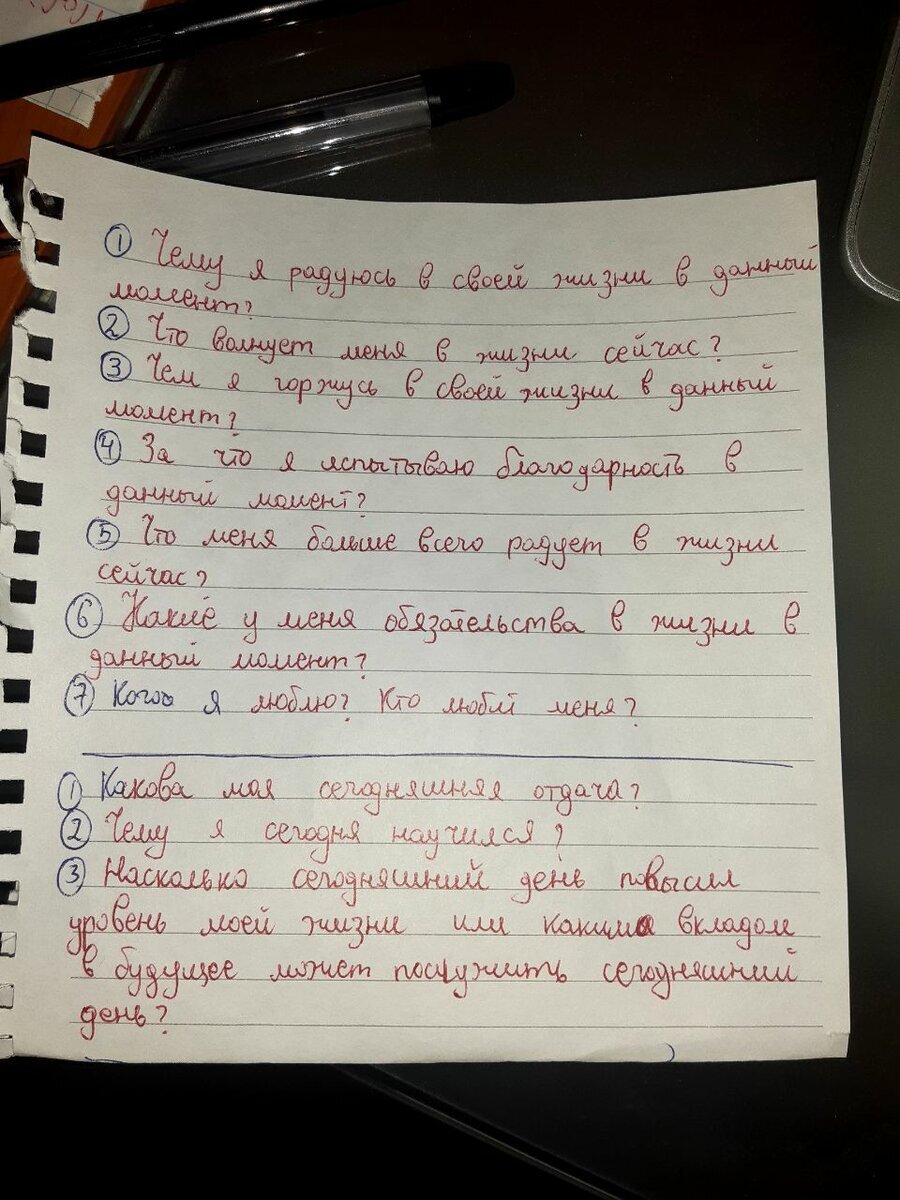 ① Чему я радуюсь в своей жизни в данный
момент?
② Что волнует меня в жизни сейчас?
③ Чем я горжусь в своей жизни в данный
момент?
④ За что я испытываю благодарность в
данный момент?
⑤ Что меня больше всего радует в жизни
сейчас?
⑥ Какие у меня обязательства в жизни в
данный момент?
⑦ Кого я люблю? Кто любит меня?
① Какова моя сегодняшняя отдача?
② Чему я сегодня научился?
③ Насколько сегодняшний день повысил
уровень моей жизни или каким вкладом
в будущее может послужить сегодняшний
день?